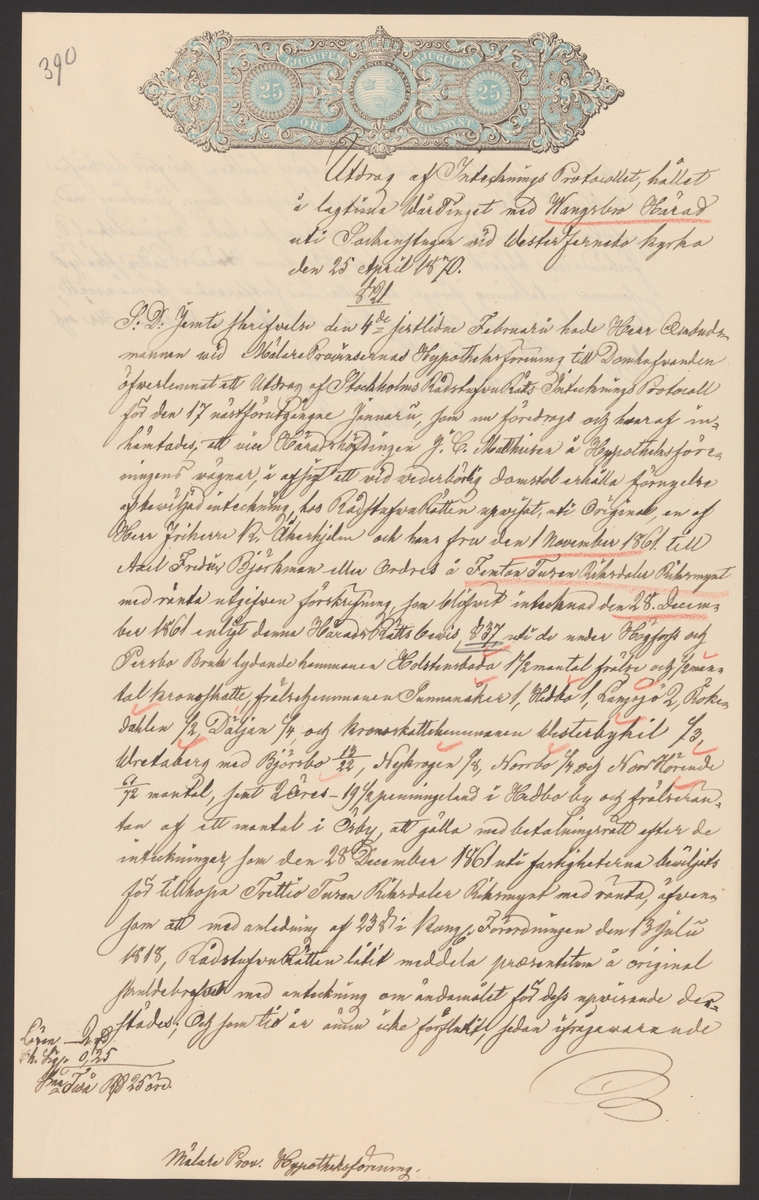 390
TJUGUFEM TJUGUFEM
25 25
ÖRE RIKSMYNT
Utdrag af Intecknings Protocollet, hållet
å lagtima WårTinget med Wangsbro Härad
uti Sockenstugan vid Westerfernebo kyrka
den 25 April 1870.
§ 21.
S: D: Jemte skrifvelse den 4de sistlidne Februarii hade Herr Ombuds-
mannen wid MälareProvinsernas Hypotheksförening till Domhafvanden
öfverlemnat ett Utdrag af Stockholms RådstufvuRätts Intecknings Protocoll
för den 17 nästförutgångne Januarii, som nu föredrogs och hvaraf in-
hämtades, att vice Häradshöfdingen J. C. Matthiesen å Hypotheksföre-
ningens vägnar, i afsigt att vid vederbörlig domstol erhålla förnyelse
af beviljad inteckning, hos RådstufvuRätten uppvisat, uti Original, en af
Herr Friherre R. Åkerhjelm och hans fru den 1 November 1861 till
Axel Fredric Björkman eller Ordres å Femton Tusen Riksdaler Riksmynt
med ränta utgifven förskrifning, som blifvit intecknad den 28. Decem-
ber 1861 enligt denna HäradsRätts bevis, § 37 uti de under Högfors och
Persbo Bruk lydande hemmanen Holstensboda 1 1/2 mantal frälse och 1/2 man-
tal kronoskatte, frälsehemmanen Sunnanåker 1, Hedbo 1, Lansjö 2, Röke-
dahlen 1/2, Däljen 1/4, och kronoskattehemmanen Westerbykil 1/3,
Wretaberg med Björsbo 13/22, Nykrogen 1/8, Norrbo 1/4 och Norr Hörende
61/72 mantal, samt 2 öres 19 1/2 penningeland i Hedbo by och frälserän-
tan af ett mantal i Örby, att gälla med betalningsrätt efter de
inteckningar, som den 28 December 1861 uti fastigheterna beviljats
för tillhopa Trettio Tusen Riksdaler Riksmynt med ränta, äfven-
som att med anledning af 23 § i Kongl. Förordningen den 13 Juli
1818, RådstufvuRätten låtit meddela præsentatum å original
skuldebrefvet med anteckning om ändamålet för dess uppvisande der-
städes; Och som tio år ännu icke förflutit, sedan ifrågavarande
Lösen 2 rd
Ch. Sigg. 0,25
Sma Två Rd 25 öre.
Mälare Prov. Hypotheksförening.